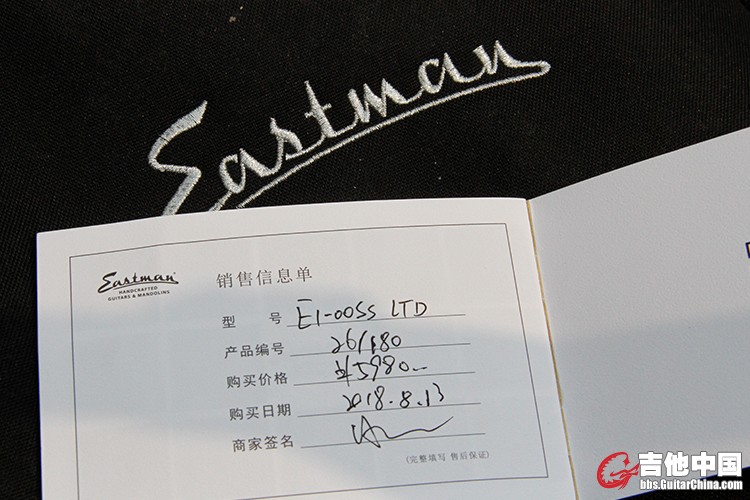 Eastman
Eastman
HANDCRAFTED
GUITARS & MANDOLINS
销售信息单
型 号 E1-00SS LTD
产品编号 26/180
购买价格 ¥5980.-
购买日期 2018.8.13
商家签名
(完整填写 售后保证)
吉他中国
bbs.GuitarChina.com